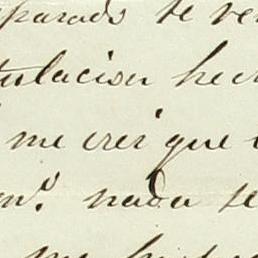 parado te ve
tulacion hec
me crei que
nada te